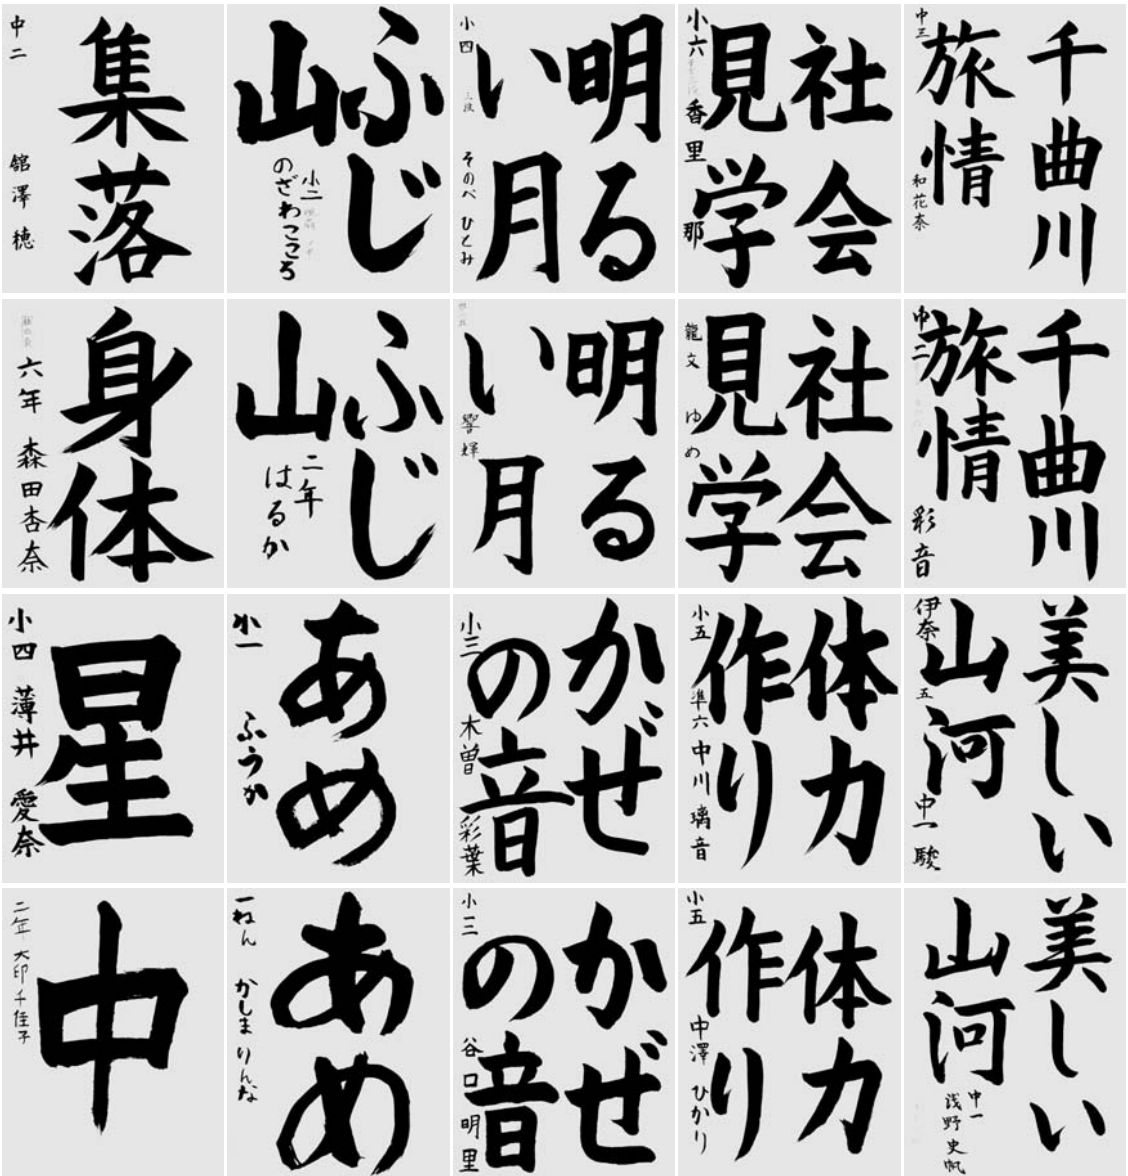 集落
中二
舘澤 穂
ふじ
山
小二
のざわこころ
明る
い月
小四
三段
そのべ ひとみ
社会
見学
小六
香里那
千曲川
旅情
中三
和花奈
身体
六年 森田杏奈
ふじ
山
二年
はるか
明る
い月
響輝
社会
見学
龍文 ゆめ
千曲川
旅情
中二
彩音
星
小四 薄井 愛奈
あめ
小一 ふうか
かぜ
の音
小三 木曽 彩葉
体力
作り
小五 準六 中川 璃音
美しい
山河
伊奈
五
中一 駿
中
二年 大印千佳子
あめ
一ねん かしま りんな
かぜ
の音
小三 谷口 明里
体力
作り
小五 中澤 ひかり
美しい
山河
中一
浅野 史帆